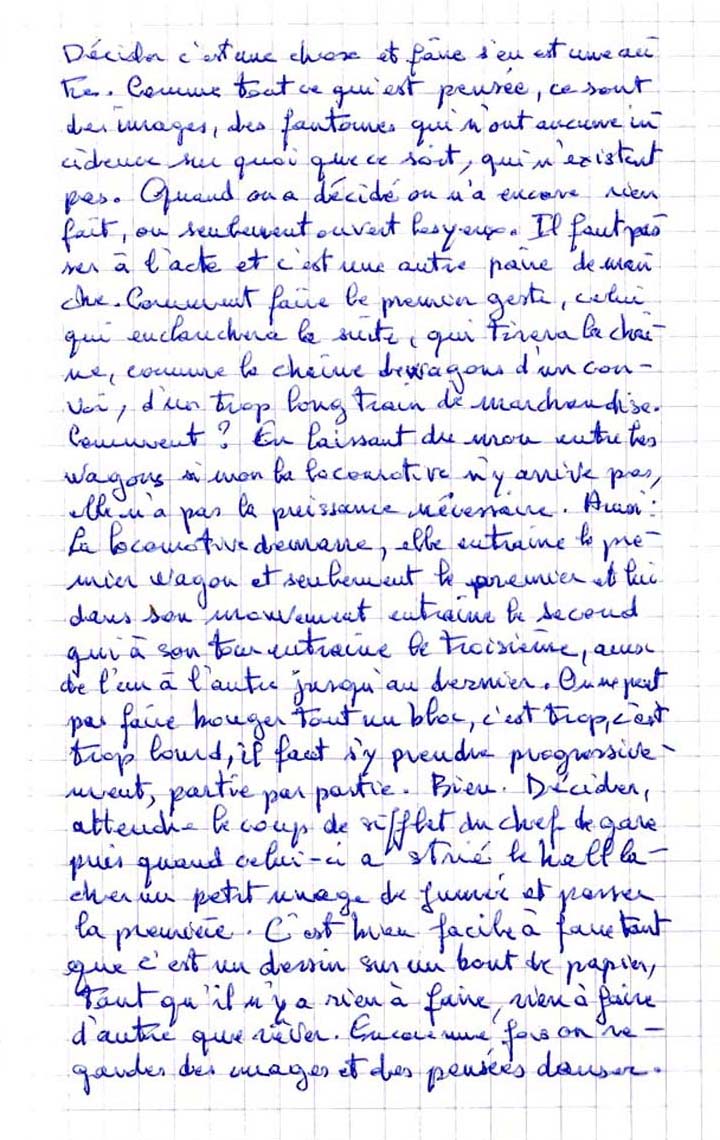 Décider c'est une chose et faire s'en est une au
tre. Comme tout ce qui est pensée, ce sont
des images, des fantomes qui n'ont aucune in
cidence sur quoi que ce soit, qui n'existent
pas. Quand on a décidé on n'a encore rien
fait, on seulement ouvert les yeux. Il faut pas
ser à l'acte et c'est une autre paire de man
che. Comment faire le premier geste, celui
qui enclanchera la suite, qui tirera la chaî-
ne, comme la chaîne de wagons d'un con-
voi, d'un trop long train de marchandise.
Comment ? En laissant du mou entre les
wagons si non la locomotive n'y arrive pas,
elle n'a pas la puissance nécessaire. Ainsi :
La locomotive demarre, elle entraine le pre-
mier wagon et seulement le premier et lui
dans son mouvement entraîne le second
qui à son tour entraine le troisième, ainsi
de l'un à l'autre jusqu'au dernier. On ne peut
pas faire bouger tout un bloc, c'est trop, c'est
trop lourd, il faut s'y prendre progressive-
ment, partie par partie. Bien. Décider,
attendre le coup de sifflet du chef de gare
puis quand celui-ci a strié le hall la-
cher un petit nuage de fumée et passer
la première. C'est bien facile à faire tant
que c'est un dessin sur un bout de papier,
tant qu'il n'y a rien à faire, rien à faire
d'autre que rêver. Encore une fois on re-
gardes des images et des pensées danser.